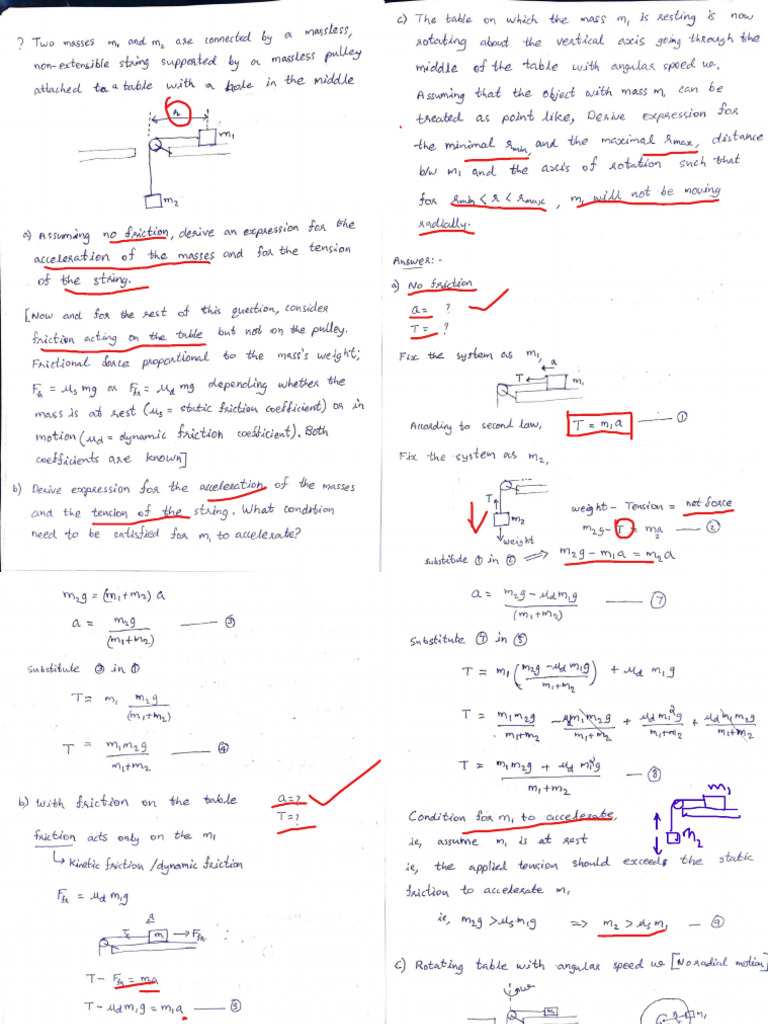 ? Two masses m₁ and m₂ are connected by a massless,
non-extensible string supported by a massless pulley
attached to a table with a hole in the middle
r
m₁
m₂
a) Assuming no friction, derive an expression for the
acceleration of the masses and for the tension
of the string.
[Now and for the rest of this question, consider
friction acting on the table but not on the pulley.
Frictional force proportional to the mass's weight;
F_fr = μₛ mg or F_fr = μ_d mg depending whether the
mass is at rest (μₛ = static friction coefficient) or in
motion (μ_d = dynamic friction coefficient). Both
coefficients are known]
b) Derive expression for the acceleration of the masses
and the tension of the string. What condition
need to be satisfied for m₁ to accelerate?
c) The table on which the mass m₁ is resting is now
rotating about the vertical axis going through the
middle of the table with angular speed ω.
Assuming that the object with mass m₁ can be
treated as point like, Derive expression for
the minimal r_min, and the maximal r_max, distance
b/w m₁ and the axis of rotation such that
for r_min < r < r_max, m₁ will not be moving
radially.
Answer:-
a) No friction
a = ?
T = ?
Fix the system as m₁,
a
T
m₁
According to second law, T = m₁a ——— ①
Fix the system as m₂,
T
m₂
weight
weight - Tension = net force
m₂g - T = m₂a —— ②
substitute ① in ② ⟹ m₂g - m₁a = m₂a
m₂g = (m₁+m₂) a
a = m₂g / (m₁+m₂) ——— ③
substitute ③ in ①
T = m₁ m₂g / (m₁+m₂)
T = m₁m₂g / m₁+m₂ ——— ④
b) With friction on the table a=?
T=?
friction acts only on the m₁
↳ Kinetic friction/dynamic friction
F_fr = μ_d m₁g
a
T
m
F_fr
T - F_fr = ma
T - μ_d m₁g = m₁a ——— ⑤
a = m₂g - μ_d m₁g / (m₁+m₂) ——— ⑦
Substitute ⑦ in ⑤
T = m₁ (m₂g - μ_d m₁g / m₁+m₂) + μ_d m₁g
T = m₁m₂g / m₁+m₂ - μm₁²g / m₁+m₂ + μ_d m₁²g / m₁+m₂ + μ_d m₁m₂g / m₁+m₂
T = m₁m₂g + μ_d m₁²g / m₁+m₂ —— ⑧
m₁
m₂
Condition for m₁ to accelerate,
ie, assume m₁ is at rest
ie, the applied tension should exceeds the static
friction to accelerate m₁
ie, m₂g > μₛm₁g ⟹ m₂ > μₛm₁ —— ⑨
c) Rotating table with angular speed ω [No radial motion]
ω